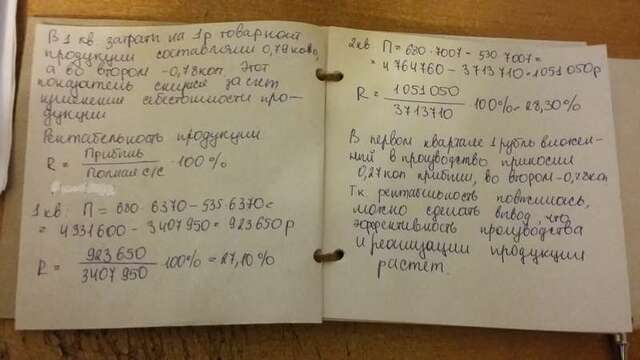 В 1 кв затраты на 1р товарной
продукции составляли 0,79 коп,
а во втором -0,78 коп. Этот
показатель снизился за счет
изменения себестоимости про-
дукции
Рентабельность продукции
R = Прибыль / Полная с/с · 100 %
1 кв: П = 680 · 6370 - 535 6370 =
= 4331600 - 3407950 = 923650 р
R = 923 650 / 3407 950 · 100% = 27,10 %
2 кв. П = 680 · 7007 - 530 · 7007 =
= 4764760 - 3713710 = 1051 050 р
R = 1051 050 / 3713710 · 100% - 28,30%
В первом квартале 1 рубль вложен-
ный в производство приносил
0,27 коп прибыли, во втором -0,28 коп
Т.к рентабельность повысилась,
можно сделать вывод, что
эффективность производства
и реализации продукции
растет.